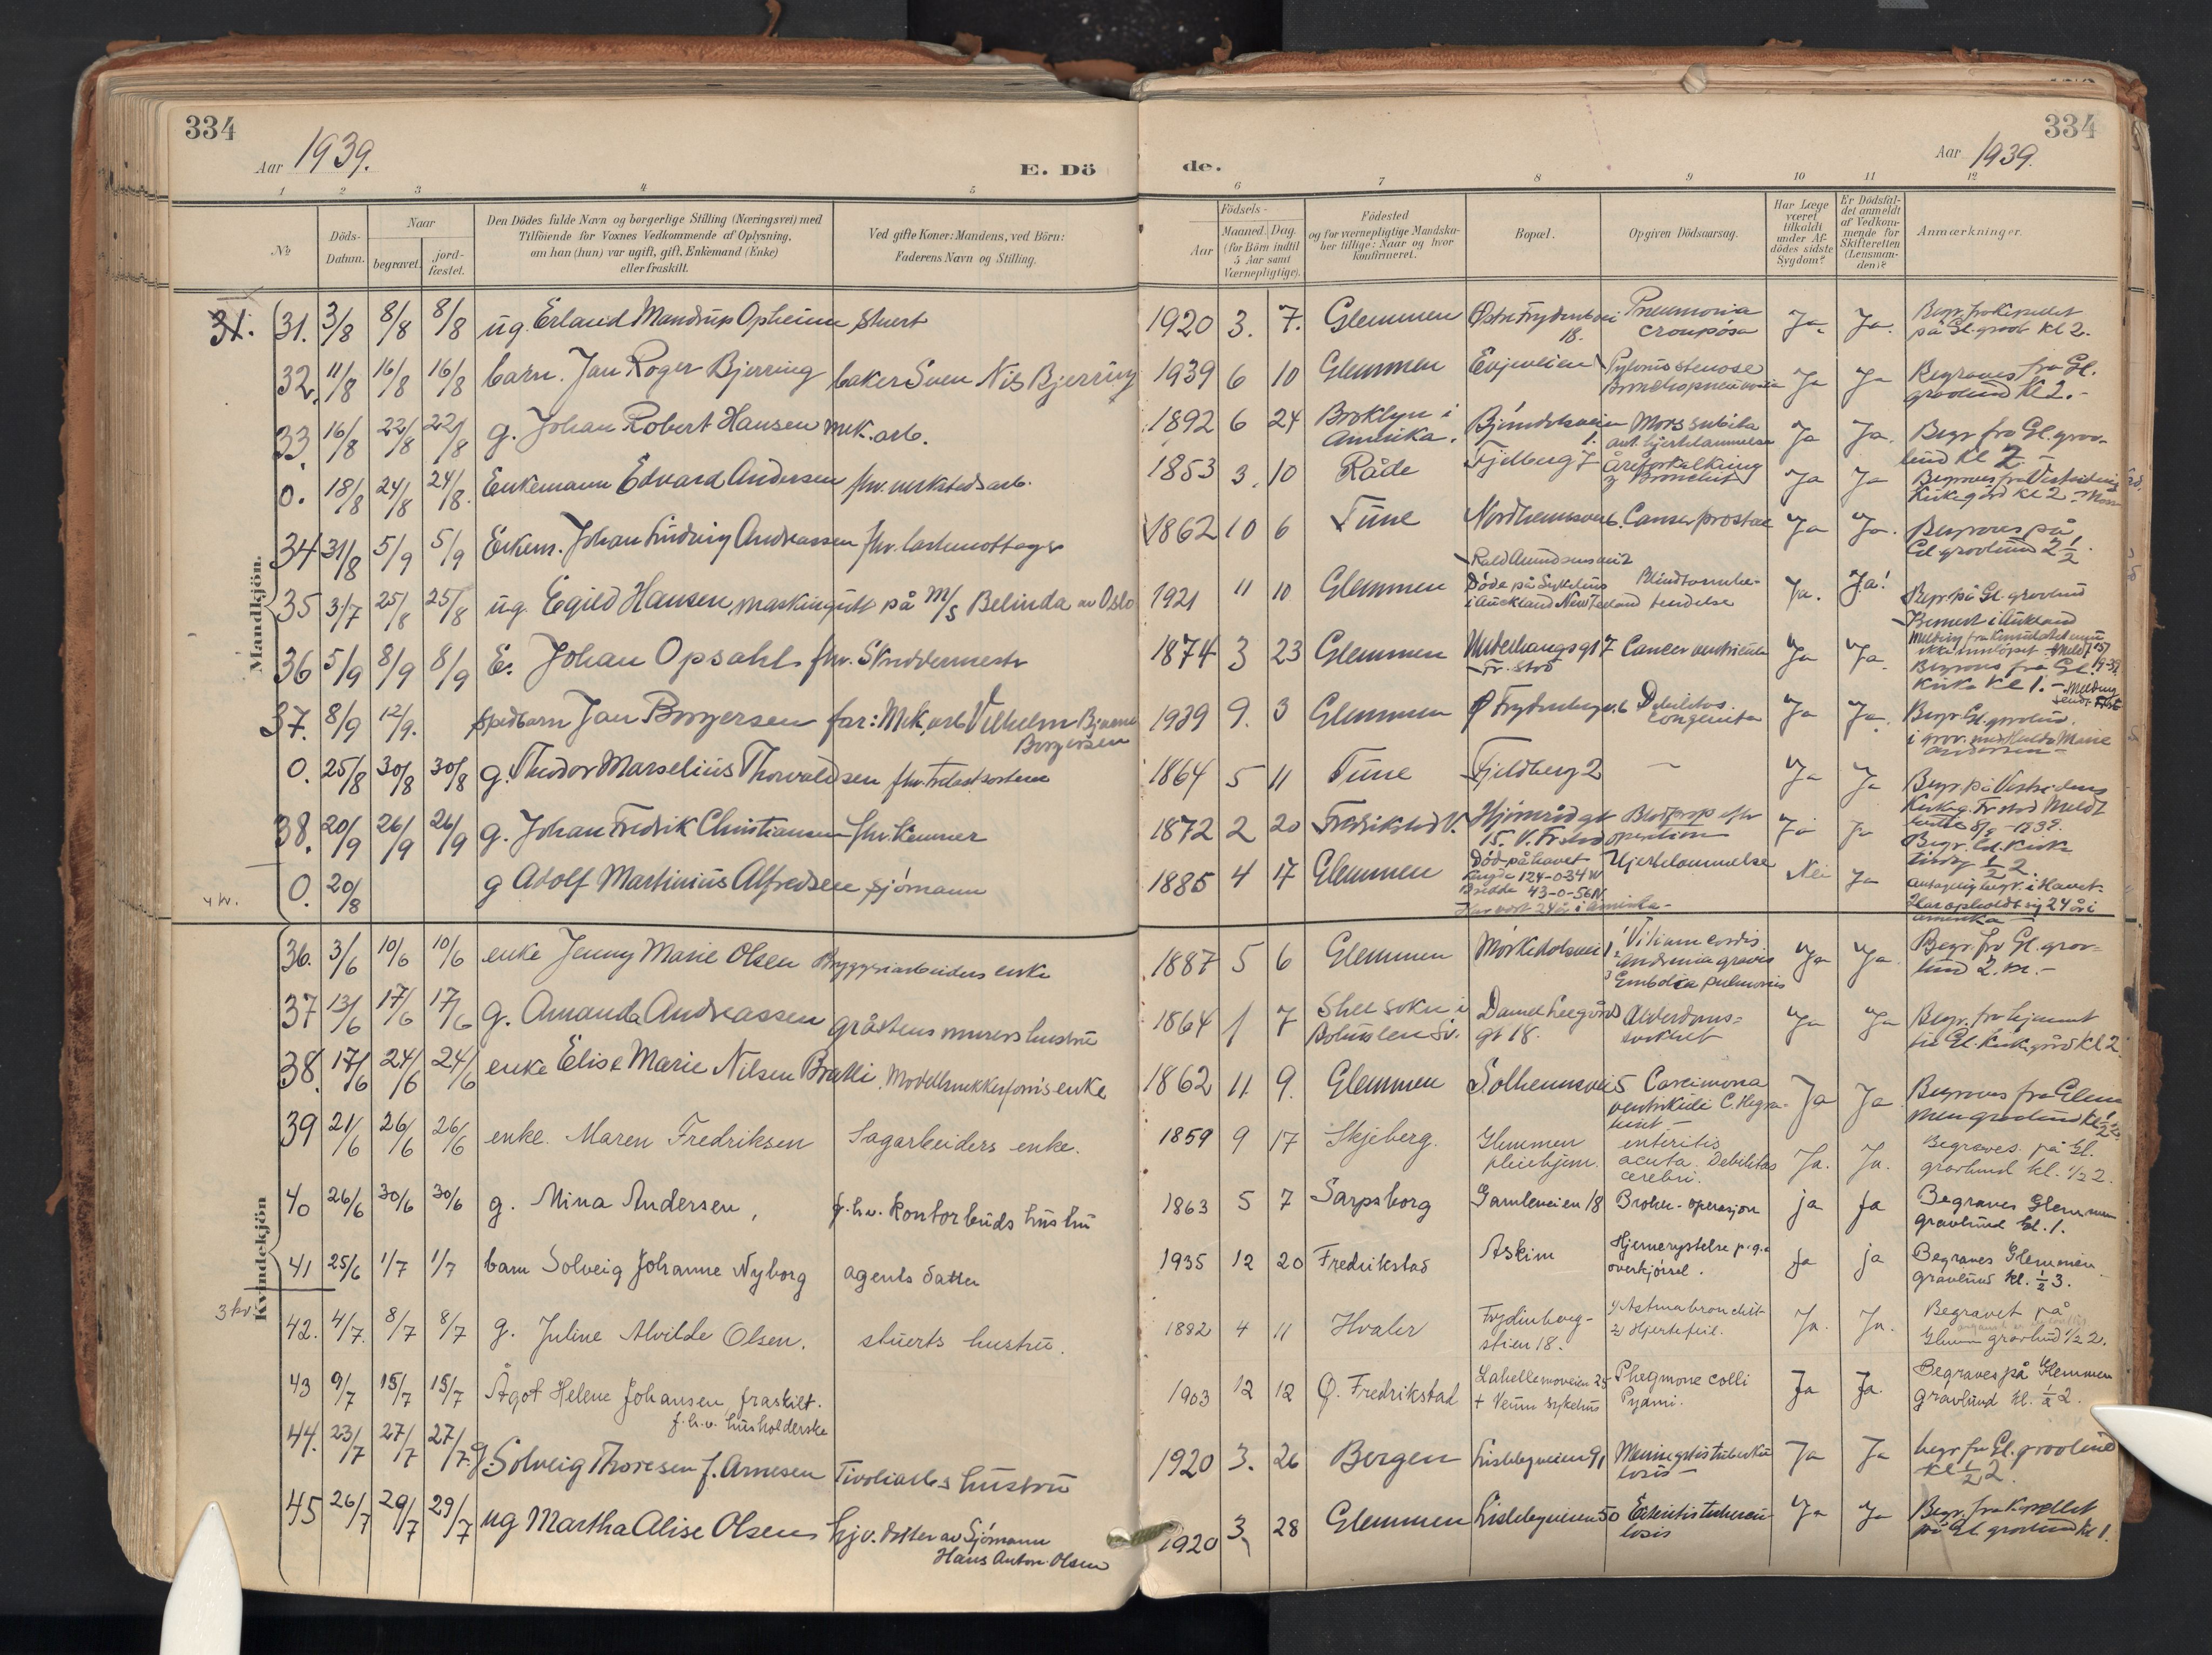 334
Aar 1939.
E. Dö
1 2 3 4 5
№
Döds-Datum.
Naar
begravet.
jord-fæstet.
Den Dödes fulde Navn og borgerlige Stilling (Næringsvei) med
Tilföiende for Voxnes Vedkommende af Oplysning,
om han (hun) var ugift, gift, Enkemand (Enke)
eller fraskilt.
Ved gifte Koner: Mandens, ved Börn:
Faderens Navn og Stilling.
Mandkjön.
31. 31. 3/8 8/8 8/8 ug. Erland Mandrup Opheim Stuert
32. 11/8 16/8 16/8 barn. Jan Roger Bjerring baker Sven Nis Bjerring
33. 16/8 22/8 22/8 g. Johan Robert Hansen mek. arb.
0. 18/8 24/8 24/8. Enkemann Edvard Andersen fhv. verkstedsarb.
34 31/8 5/9 5/9 Enkem. Johan Ludvig Andreassen fhv. lastemottager
35 31/7 25/8 25/8 ug. Egild Hansen, maskingutt på M/S Belinda av Oslo
36 5/9 8/9 8/9 E. Johan Opsahl fhv. Skreddermester
37. 8/9 12/9. spedbarn Jan Borgersen far: Mek. arb Vilhelm Bjarne
Borgersen
0. 25/8 30/8 30/8 g. Theodor Marselius Thorvaldsen fhv. Trelastsorterer
38. 20/9 26/9 26/9 g. Johan Fredrik Christiansen fhv. Kemner
4 kv. 0. 20/8 g Adolf Martinius Alfredsen sjömann
Kvindekjön
36. 3/6 10/6 10/6 enke Jenny Marie Olsen Bryggeriarbeiders enke
37 13/6 17/6 17/6 g. Amanda Andreassen gråstens murers hustru
38. 17/6 24/6 24/6 enke Elise Marie Nilsen Bratli Modellsnekkerform's enke
39 21/6 26/6 26/6 enke. Maren Fredriksen Sagarbeiders enke.
40 26/6 30/6 30/6 g. Mina Andersen, f.h.v. Kontorbuds hustru
41 25/6 1/7 1/7 barn Solveig Johanne Nyborg agents datter
3 kv.
42. 4/7. 8/7 8/7 g. Juline Alvilde Olsen. stuerts hustru.
43 9/7 15/7 15/7 Ågot Helene Johansen, fraskilt.
f.h.v. husholderske
44. 23/7 27/7 27/7. g. Solveig Thoresen f. Arnesen Tivoliarb's hustru
45 26/7 29/7 29/7 ug Martha Alise Olsen hjv. datter av Sjömann
Hans Anton Olsen
334
de. Aar 1939.
6 7 8 9 10 11 12
Födsels-
Aar
Maaned. Dag.
(for Börn indtil
5 Aar samt
Værnepligtige).
Födested
og for værnepligtige Mandska-
ber tillige: Naar og hvor
konfirmeret.
Bopæl.
Opgiven Dödsaarsag.
Har Læge
været
tilkaldt
under Af-
dödes sidste
Sygdom?
Er Dödsfal-
det anmeldt
af Vedkom-
mende for
Skifteretten
(Lensman-
den)?
Anmærkninger.
1920 3. 7. Glemmen Østre Frydenbergvei Pneumonia Ja. Ja. Begr. fra Kapellet
18. croupösa på Gl. gravl kl 2.
1939 6 10 Glemmen Evjeveien Pylorusstenose Ja Ja Begraves fra Gl.
Bronchopneumonia gravlund kl 2.-
1892 6 24 Broklyn i Bjørndalsveien Mors subita Ja Ja. Begr fra Gl. grav-
Amerika. 1. ant. hjertelammelse lund kl 2
1853 3. 10 Råde Fjeldberg 7 Åreforkalkning Ja Ja Begraves fra Vestsidens
Bronchit Kirkegård kl 2
1862 10 6 Tune Nordhemsvei 6. Cancer prostae Ja Ja. Begraves på
Gl. gravlund 2 1/2.
1921 11 10 Glemmen Roald Amundsensvei 2
Døde på Sykehus Blindtarmbe- Ja. Ja! Begr. på Gl. gravlund
i Auckland New Zealand tendelse Bremert i Aukland
1874 3 23 Glemmen Underhaugsgt 7 Cancer ventriculi Ja Ja. Begraves fra Gl.
Fr. stad Kirke kl 1.-
1939 9. 3 Glemmen Ø Frydenbergv. 6 Debilitas Ja Ja. Begr. Gl. gravlund.
congenita i grav. med Hulda Marie
Andersen-
1864 5 11 Tune Fjeldberg 2 — Ja Ja Begr. på Vestsidens
Kirkeg. Fr stad Meldt
1872 2 20 Fredrikstad V. Blodprop efter Ja Ja Begr. Gl. Kirke
15. V. Fr. stad operation tirsdag 1/2 2.
1885 4 17 Glemmen Död på havet Hjertelammelse Nei Ja antagelig begr. i Havet-
Lengde 124-0-34 W Har opholdt sig 24 år i
Bredde 43-0-56 N. amerika
Har vært 24 år i Amerika-
1887 5 6 Glemmen Mørkedalsveien 1 1 Vitium cordis Ja Ja Begr. fra Gl. grav-
2 anæmia gravis lund 2. kl.-
3 Embolia pulmonis
1864 1 7 Skee sokn i Damel Leegårds Alderdoms- Ja Ja Begr. fra hjemmet
Bohuslen Sv. gt 18. svekket til Gl. Kirkegård kl 2.
1862 11. 9. Glemmen Solheimsvei 5 Carcinoma Ja Ja Begraves fra Glem
ventrikuli men gravlund kl 1/2 2
1859 9 17 Skjeberg. Glemmen enteritis Ja. Ja. Begraves på Gl.
pleiehjem. acuta. Debilitas gravlund kl. 1/2 2.
cerebri.
1863 5 7 Sarpsborg Gamleveien 18 Brokk-operasjon ja ja Begraves Glemmen
gravlund kl. 1.
1935 12 20 Fredrikstad Askim Hjernerystelse p.g.a ja ja Begraves Glemmen
overkjörsel. gravlund kl. 1/2 3.
1892 4 11 Hvaler Frydenberg- 1/ Astmabronchit Ja. Ja. Begravet på
stien 18. 2/ Hjertefeil. Glemm gravlund 1/2 2.
1903 12 12 Ø. Fredrikstad Lahellemoveien 25 Phlegmone colli Ja Ja. Begraves på Glemmen
+ Veum sykehus Pyämi. gravlund kl. 1/2 2.
1920 3. 26 Bergen Lislebyveien 91 Meningitis tuberku Ja Ja begr. fra Gl. gravlund
losis- kl 1/2 2.
1920 3. 28 Glemmen Lislebyveien 50 Enteritis tubercu- Ja Ja Begr. fra Kapellet
losis på Gl. gravlund kl 1.